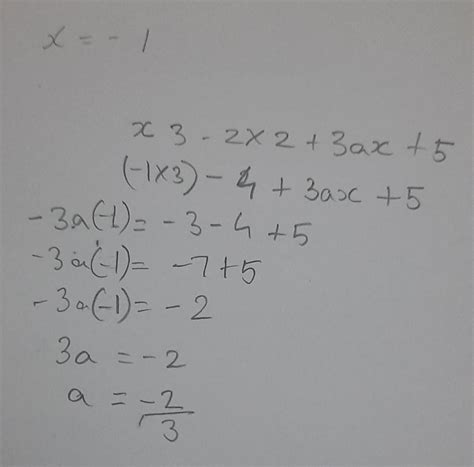 x = - 1
x 3 - 2 x 2 + 3ax + 5
(-1x3) - 4 + 3ax + 5
- 3a(-1) = - 3 - 4 + 5
- 3a(-1) = - 7 + 5
- 3a(-1) = - 2
3a = - 2
a = -2/3